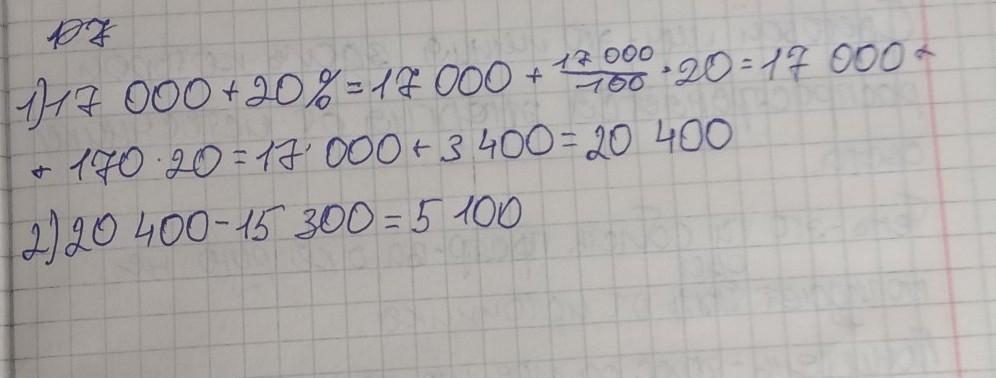 107
1) 17 000 + 20% = 17 000 + 17 000/100 · 20 = 17 000 +
+ 170 · 20 = 17 000 + 3 400 = 20 400
2) 20 400 - 15 300 = 5 100